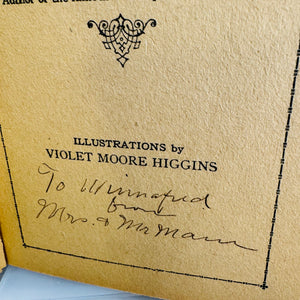 Author of the
ILLUSTRATIONS by
VIOLET MOORE HIGGINS
To Winnafred
from
Mrs. & Mr Mann